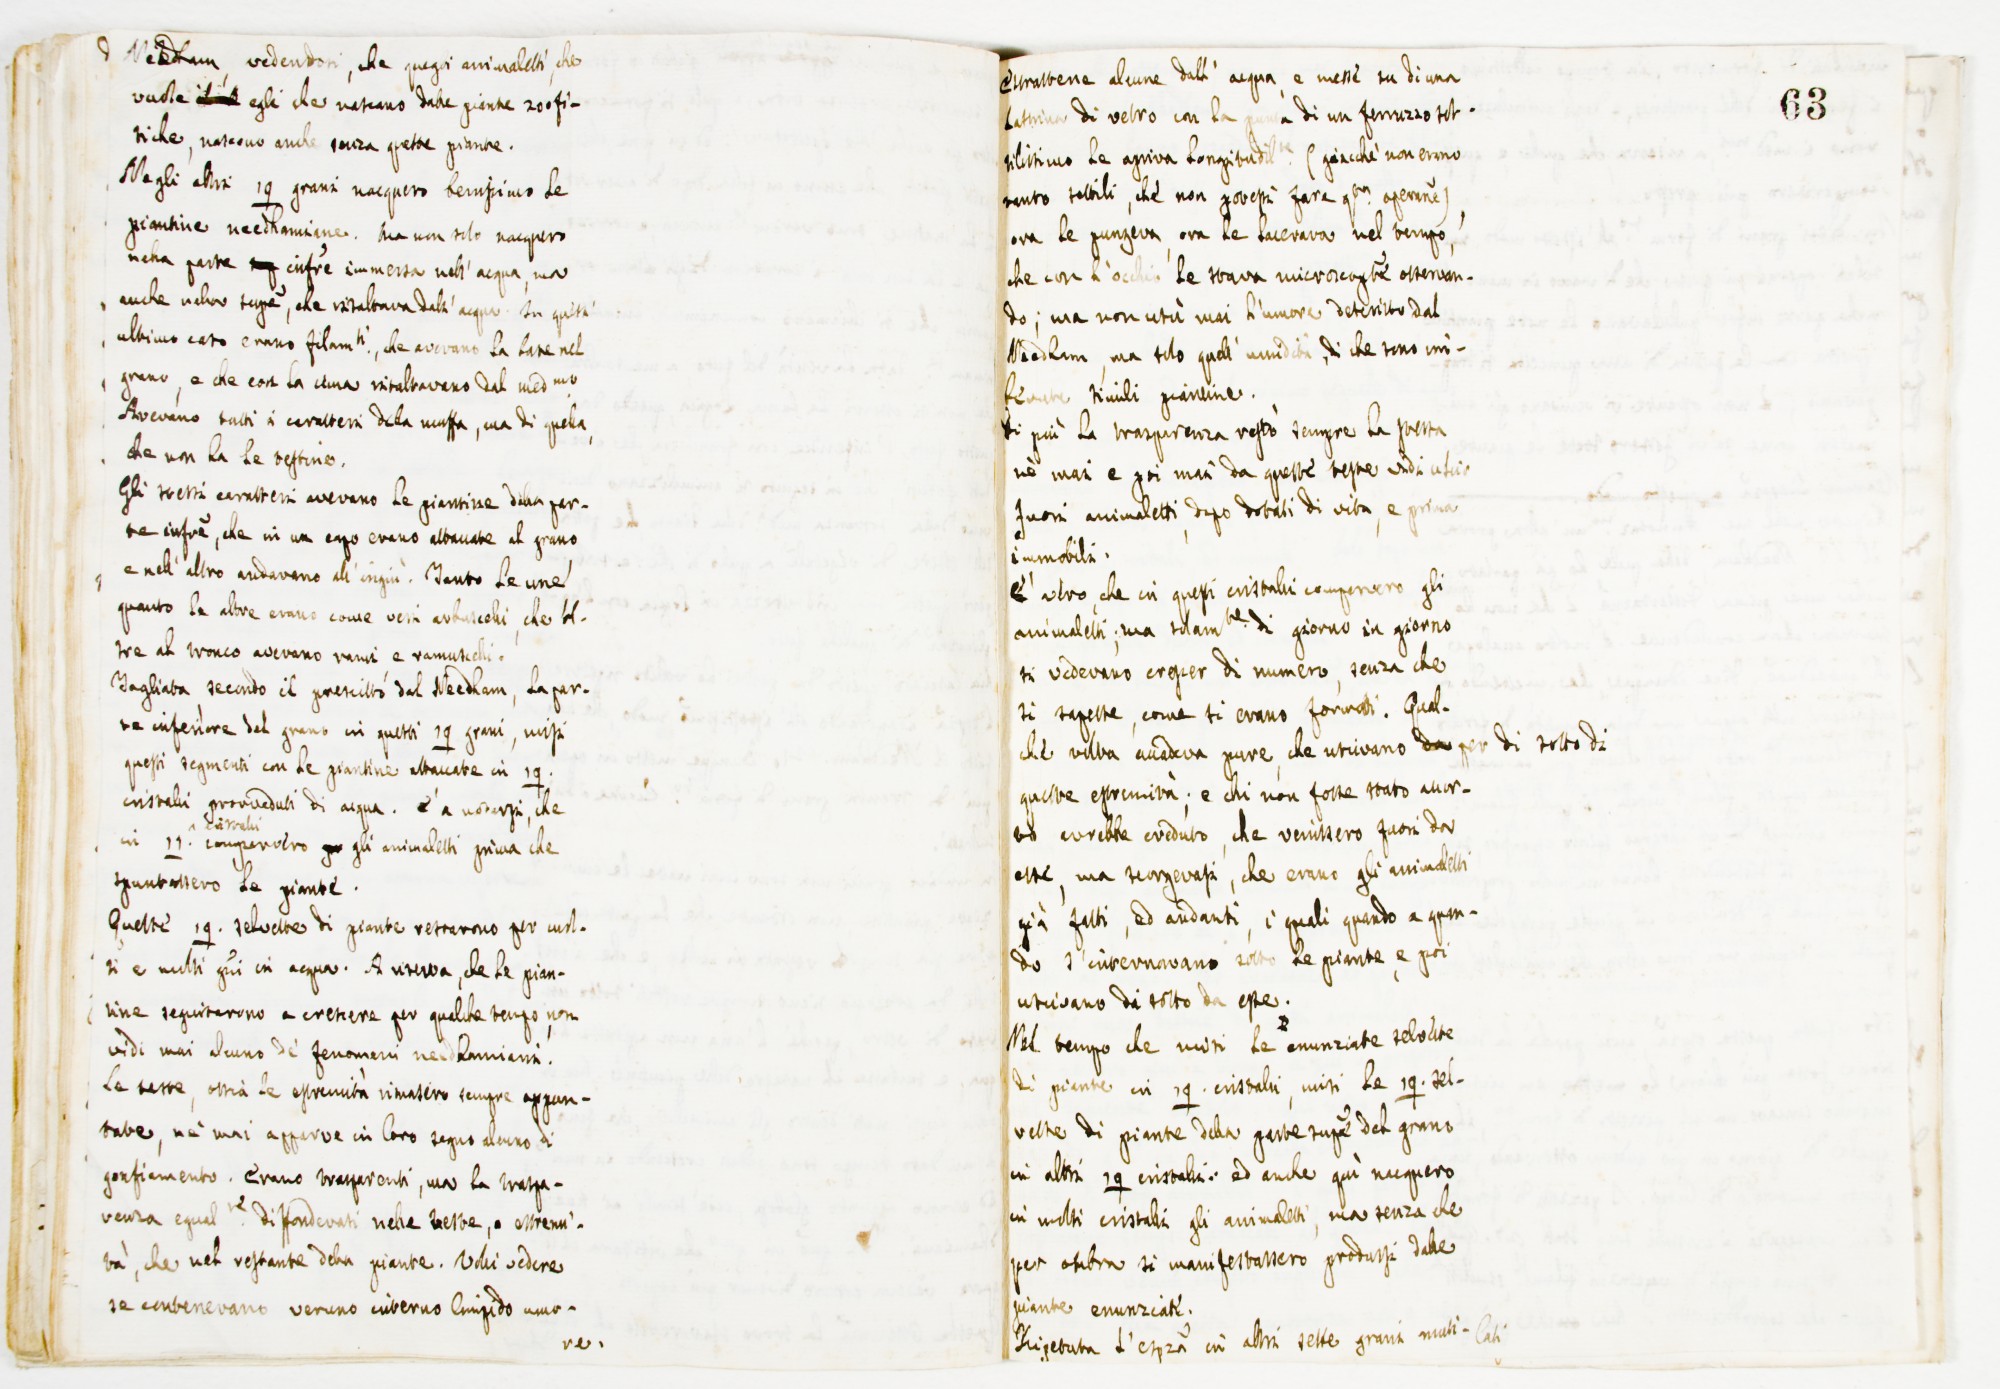 Needham, vedendosi, che quegli animaletti, che
vuole egli che nascano dalle piante zoofi-
tiche, nascono anche senza queste piante.
Negli altri 19 grani nacquero benissimo le
piantine needhamiane. Ma non solo nacquero
nella parte infre immersa nell' acqua, ma
anche nella supe, che risaltava dall' acqua. In quest'
ultimo caso erano filamti, che avevano la base nel
grano, e che con la cima risaltavano dal medmo
Avevano tutti i caratteri della muffa, ma di quella,
che non ha le testine.
Gli stessi caratteri avevano le piantine della par-
te infre, che in un capo erano attaccate al grano,
e nell' altro andavano all' ingiù. Tanto le une,
quanto le altre erano come veri arbuscelli, che ol-
tre al tronco avevano rami e ramuscelli.
Tagliata secondo il prescritto dal Needham, la par-
te inferiore del grano in questi 19 grani, misi
questi segmenti con le piantine attaccate in 19.
cristalli provveduti di acqua. E' a notarsi, che
in 11. cristalli comparvero gli animaletti prima che
spuntassero le piante.
Queste 19. selvette di piante restarono per mol-
ti e molti gni in acqua. A riserva, che le pian-
tine seguitarono a crescere per qualche tempo, non
vidi mai alcuno de' fenomeni needhamiani.
Le teste, ossia le estremità rimasero sempre appun-
tate, nè mai apparve in loro segno alcuno di
gonfiamento. Erano trasparenti, ma la traspa-
renza egualte diffondevasi nelle teste, o estremi-
tà, che nel restante della piante. Volli vedere
se contenevano veruno interno limpido umo-
re.
63
Estrattene alcune dall' acqua, e messe su di una
lastrina di vetro con la punta di un ferruzzo sot-
tilissimo le apriva longitudilte. (giacchè non erano
tanto sottili, che non potessi fare qta operane),
ora le pungeva, ora le lacerava nel tempo,
che con l'occhio le stava microscopte osservan-
do; ma non uscì mai l'umore descritto dal
Needham, ma solo quell' umidità, di che sono im-
bevute simili piantine.
Di più la trasparenza restò sempre la stessa
nè mai e poi mai da queste teste vidi uscir
fuori animaletti, dapo dotati di vita, e prima
immobili.
E' vero, che in questi cristalli comparvero gli
animaletti; ma solamte. di giorno in giorno
si vedevano crescer di numero, senza che
si sapesse, come si erano formati. Qual-
che volta accadeva pure, che uscivano per di sotto di
queste estremità; e chi non fosse stato accor-
to avrebbe creduto, che venissero fuori da
esse, ma scorgevasi, che erano gli animaletti
già fatti, ed andanti, i quali quando a quan-
do s'internavano sotto le piante, e poi
uscivano di sotto da esse.
Nel tempo che misi le enunziate selvette
di piante in 19. cristalli, misi le 19. sel-
vette di piante della parte supe del grano
in altri 19 cristalli: ed anche quì nacquero
in molti cristalli gli animaletti, ma senza che
per ombra si manifestassero prodotti dalle
piante enunziate.
Ripetuta l'espza in altri sette grani muti-lati